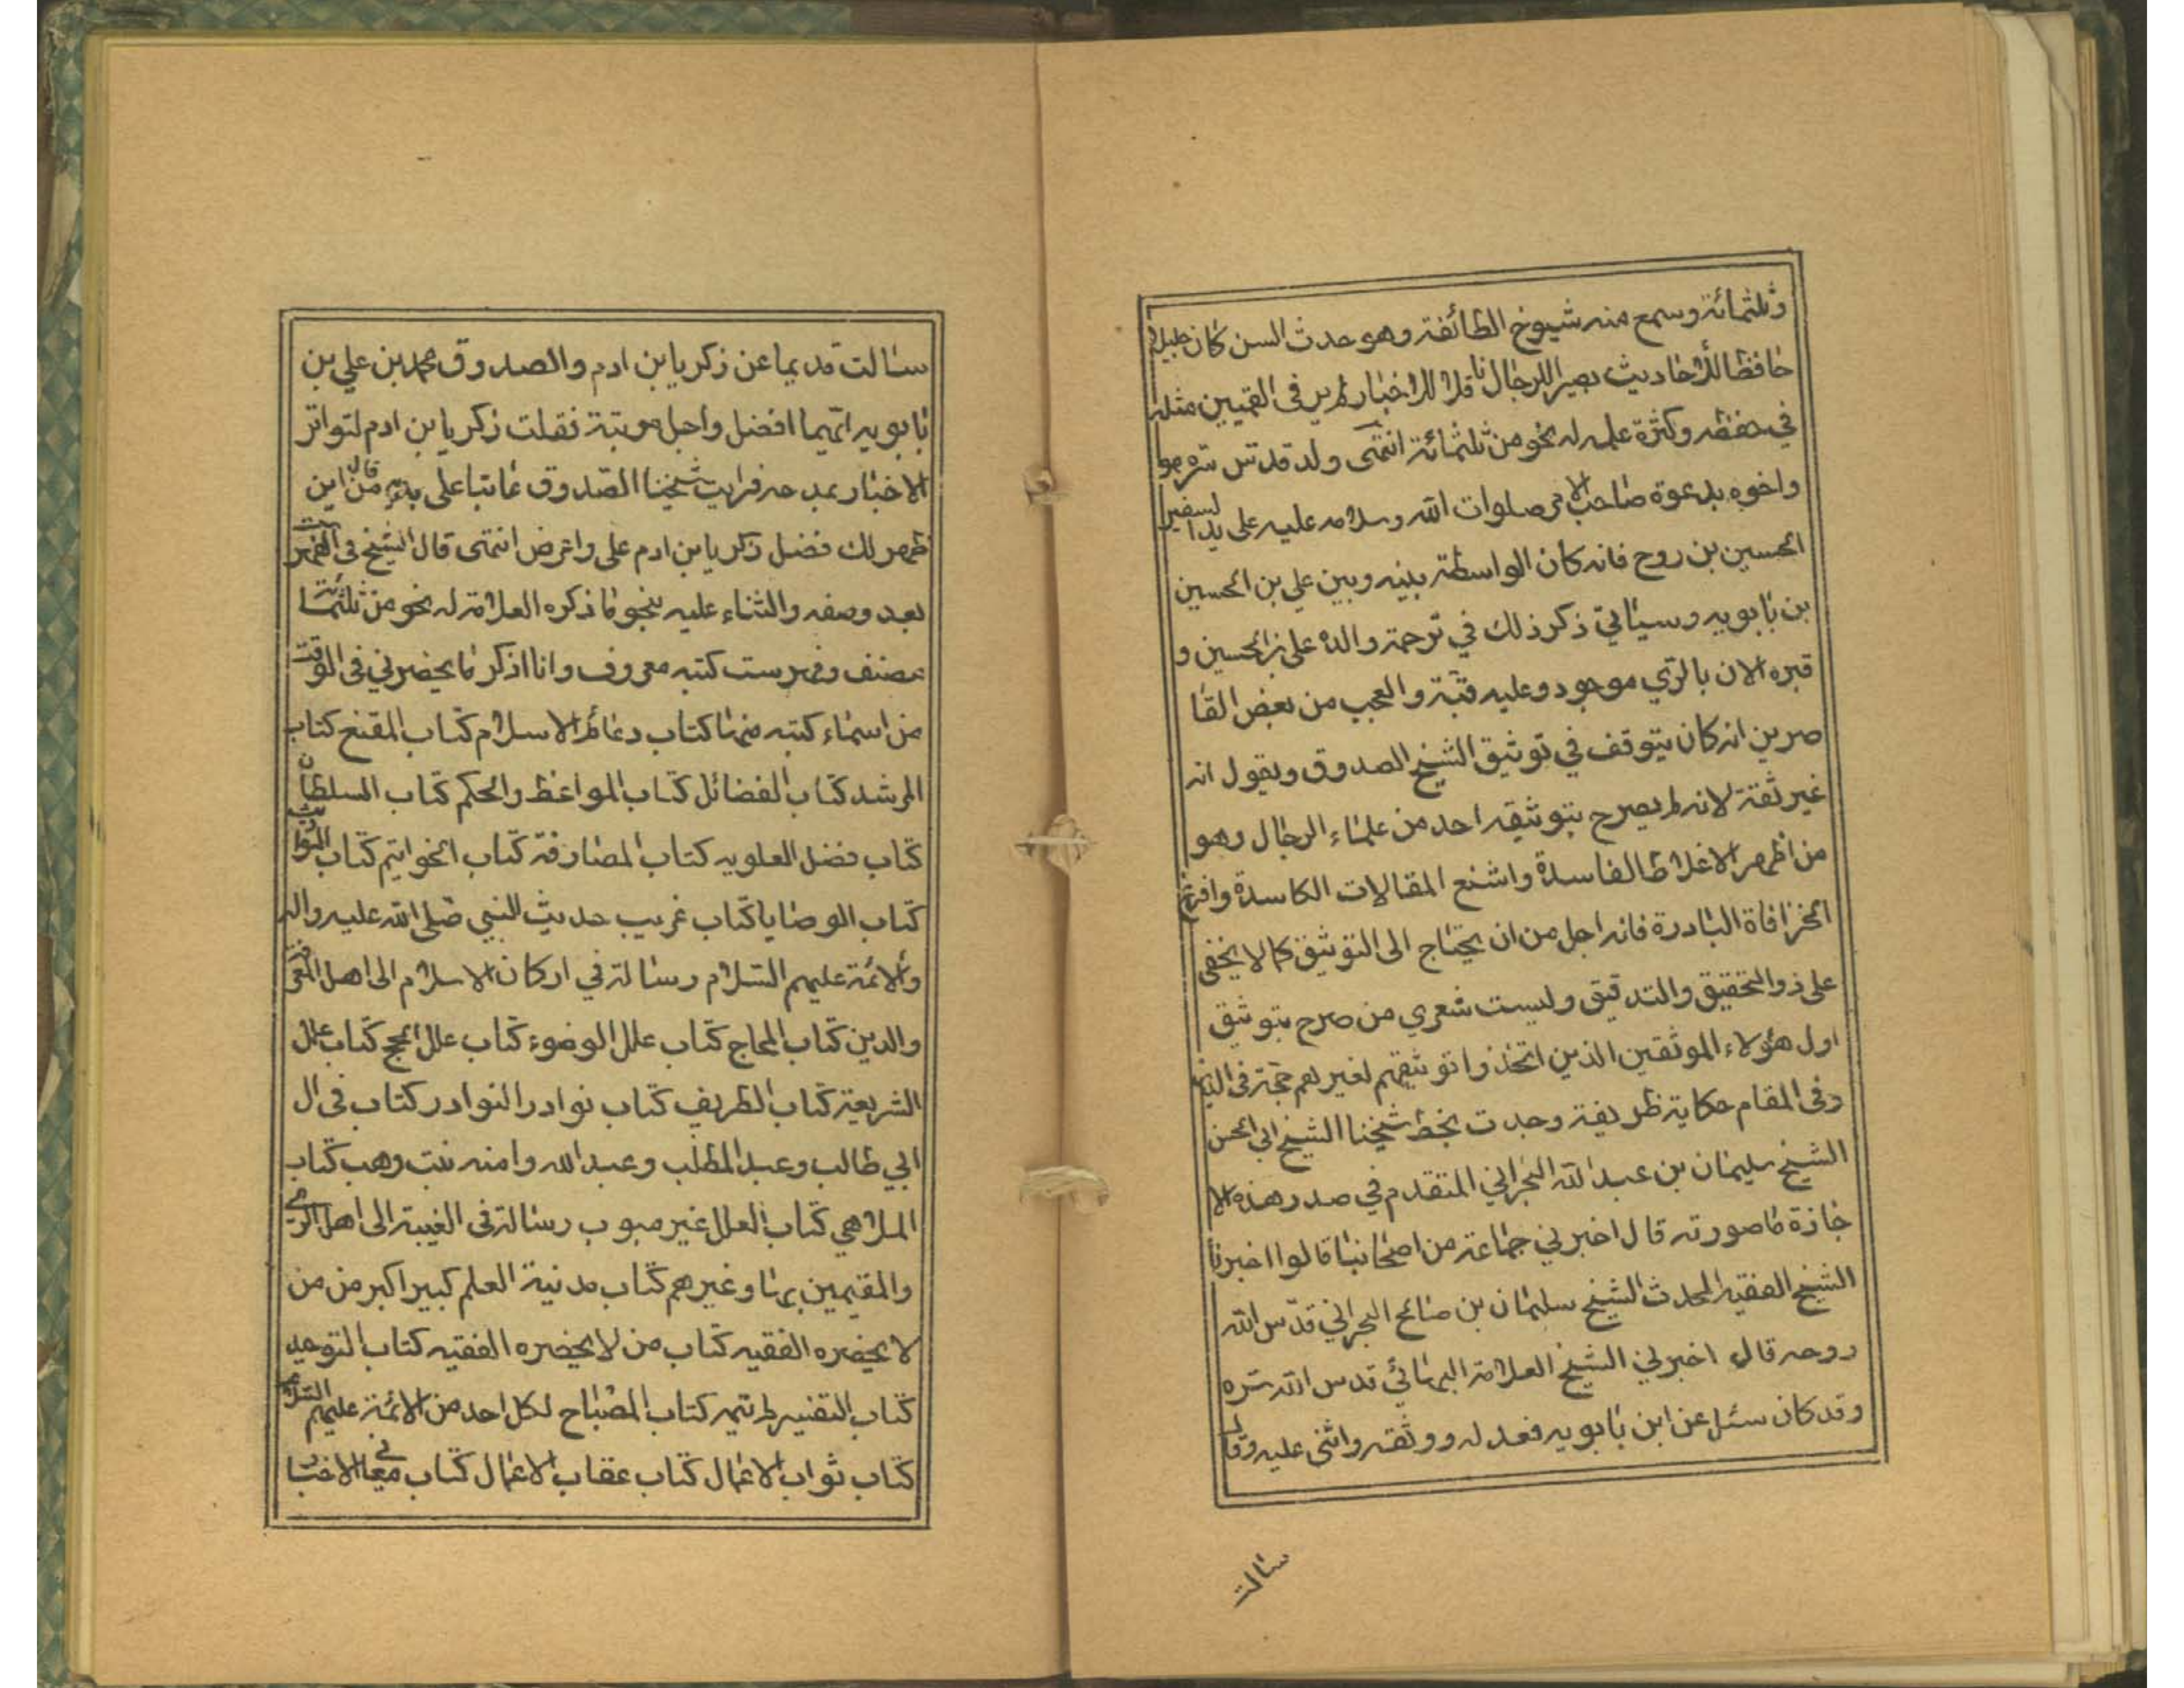 وثلثمائة وسمع منه شيوخ الطائفة وهو حدث السن كان جليلا
حافظا للأحاديث بصيرا للرجال ناقلا للاخبار لم ير في القميين مثله
في حفظه وكثرة علمه له نحو من ثلثمائة انتهى ولد قدس سره هو
واخوه بدعوة صاحب الامر صلوات الله وسلامه عليه على يد السفير
الحسين بن روح فانه كان الواسطة بينه وبين علي بن الحسين
بن بابويه وسيأتي ذكر ذلك في ترجمة والده علي بن الحسين و
قبره الان بالري موجود وعليه قبة والعجب من بعض القا
صرين انه كان يتوقف في توثيق الشيخ الصدوق ويقول انه
غير ثقة لانه لم يصرح بتوثيقه احد من علماء الرجال وهو
من اظهر الاغلاط الفاسدة واشنع المقالات الكاسدة وافزع
الخرافاة البادرة فانه اجل من ان يحتاج الى التوثيق كما لا يخفى
على ذو التحقيق والتدقيق وليست شعري من صرح بتوثيق
اول هؤلاء الموثقين الذين اتخذوا توثيقهم لغيرهم حجة في
وفي المقام حكاية ظريفة وجدت بخط شيخنا الشيخ ابي الحسن
الشيخ سليمان بن عبد الله البحراني المتقدم في صدر هذه الا
جازة ما صورته قال اخبرني جماعة من اصحابنا قالوا اخبرنا
الشيخ الفقيه المحدث الشيخ سليمان بن صالح البحراني قدس الله
روحه قال اخبرني الشيخ العلامة البهائي قدس الله سره
وقد كان سئل عن ابن بابويه فعدله ووثقه واثنى عليه وقال
سالت
سالت قديما عن زكريا بن ادم والصدوق محمد بن علي بن
بابويه ايهما افضل واجل مرتبة فقلت زكريا بن ادم لتواتر
الاخبار بمدحه فرايت شيخنا الصدوق عاتبا علي قال من اين
ظهر لك فضل زكريا بن ادم علي واعرض انتهى قال الشيخ في الفهرست
بعد وصفه والثناء عليه بنحو ما ذكره العلامة له نحو من ثلثمائة
مصنف وفهرست كتبه معروف وانا اذكر ما يحضرني في الوقت
من اسماء كتبه منها كتاب دعائم الاسلام كتاب المقنع كتاب
المرشد كتاب الفضائل كتاب المواعظ والحكم كتاب السلطان
كتاب فضل العلويه كتاب المصادفة كتاب الخواتيم كتاب المواريث
كتاب الوصايا كتاب غريب حديث النبي صلى الله عليه واله
والائمة عليهم السلام رسالة في اركان الاسلام الى اهل المعرفة
والدين كتاب المحاج كتاب علل الوضوء كتاب علل الحج كتاب علل
الشريعة كتاب الطريف كتاب نوادر النوادر كتاب في ال
ابي طالب وعبد المطلب وعبد الله وامنه بنت وهب كتاب
الملاهي كتاب العلل غير مبوب رسالة في الغيبة الى اهل الري
والمقيمين بها وغيرهم كتاب مدينة العلم كبير اكبر من من
لا يحضره الفقيه كتاب من لا يحضره الفقيه كتاب التوحيد
كتاب التفسير لم يتمه كتاب المصباح لكل احد من الائمة عليهم السلام
كتاب ثواب الاعمال كتاب عقاب الاعمال كتاب معاني الاخبار